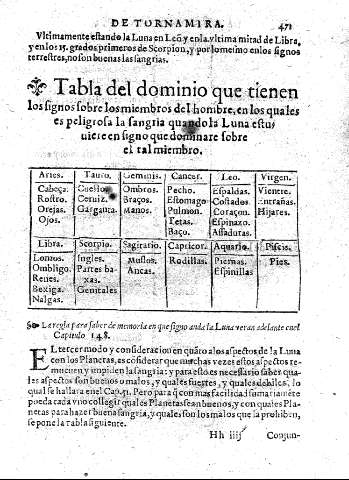 DE TORNAMIRA. 471
Vltimamente estando la Luna en Leō y en la vltima mitad de Libra,
y en los 15. grados primeros de Scorpion, y por lo mesmo en los signos
terrestres, no son buenas las sangrias.
Tabla del dominio que tienen
los signos sobre los miembros del hombre, en los quales
es peligrosa la sangria quando la Luna estu-
uiere en signo que dominare sobre
el tal miembro.
Aries. Tauro. Geminis. Cancer. Leo. Virgen.
Cabeça. Cuello. Ombros. Pecho. Espaldas. Vientre.
Rostro. Ceruiz. Braços. Estomago Costados. Entrañas.
Orejas. Garganta. Manos. Pulmon. Coraçon. Hijares.
Ojos. Tetas. Espinazo.
Baço. Assaduras.
Libra. Scorpio. Sagitario. Capricor. Aquario. Piscis.
Lomos. Ingles. Muslos. Rodillas. Piernas. Pies.
Ombligo. Partes ba- Ancas. Espinillas
Renes. xas.
Bexiga. Genitales
Nalgas.
La regla para saber de memoria en que signo anda la Luna veras adelante en el
Capitulo 148.
EL tercer modo y consideracion en quāto a los aspectos de la Luna
con los Planetas, es cōsiderar que muchas vezes estos aspectos re-
mueuen y impiden la sangria: y para esto es necessario saber qua-
les aspectos son buenos o malos, y quales fuertes, y quales debiles, lo
qual se hallara en el Cap. Pero para q̄ con mas facilidad sumariamēte
pueda cada vno collegir quales Planetas seā buenos, y con quales Pla-
netas para hazer buena sangria, y quales son los malos que la prohiben,
se pone la tabla siguiente.
Hh iiij Conjun-